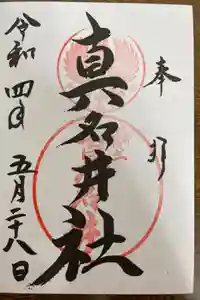 奉拝
真名井社
令和四年 五月二十八日